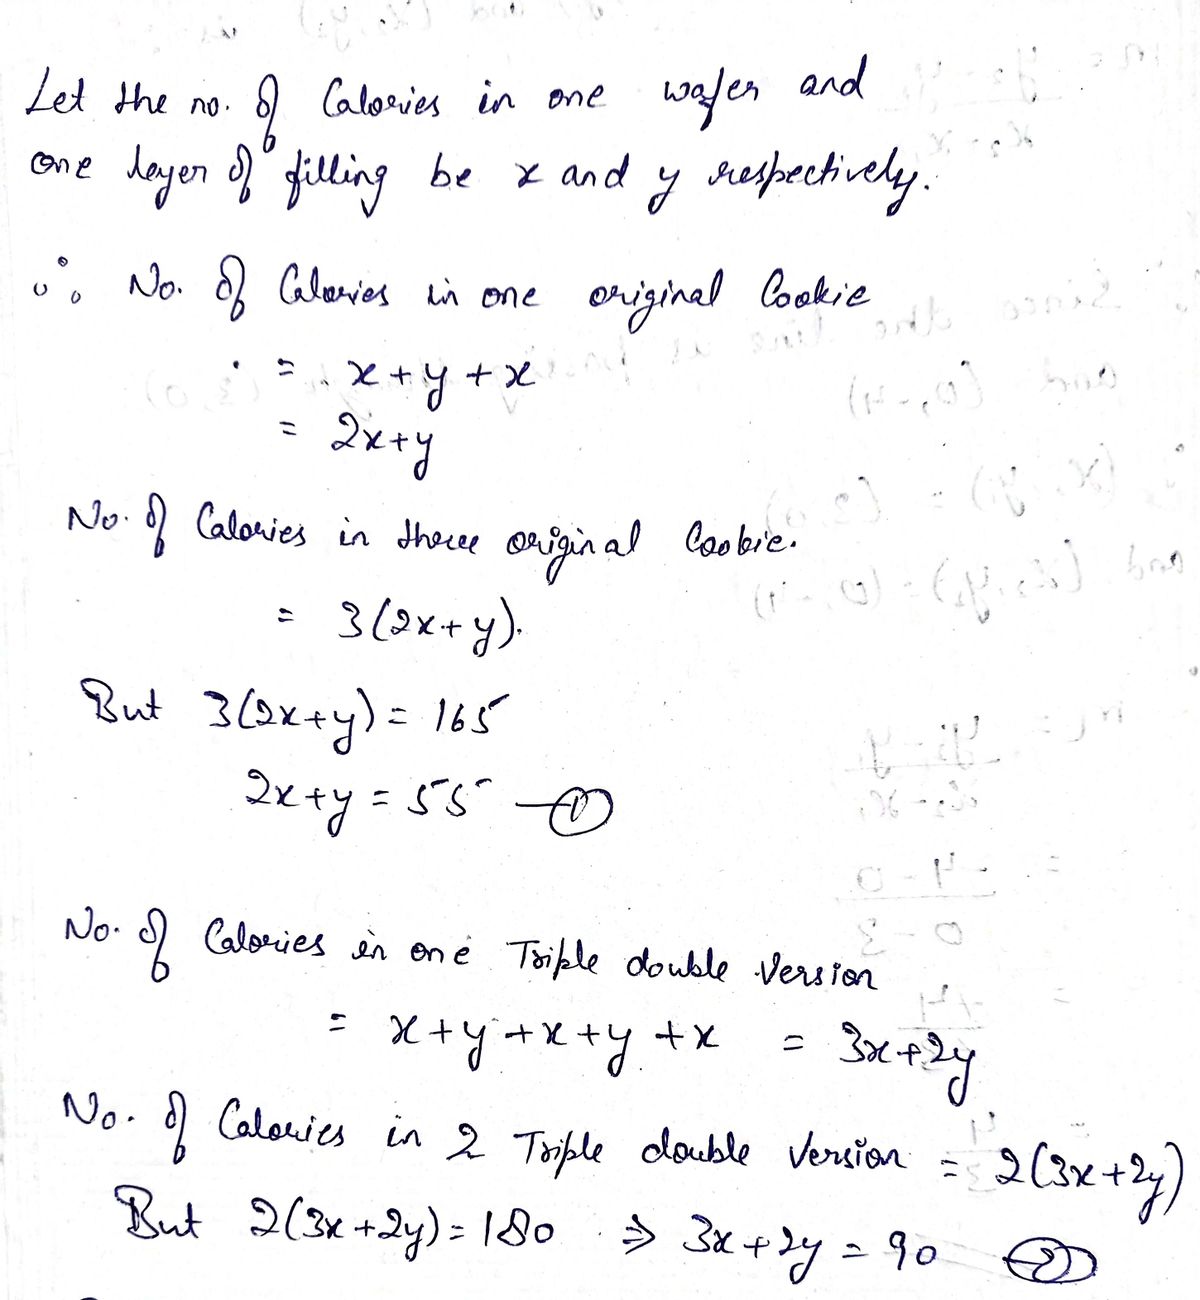 Let the no. of Calories in one wafer and
one layer of filling be x and y respectively.
∴ No. of Calories in one original Cookie
= x + y + x
= 2x+y
No. of Calories in three original Cookie.
= 3(2x+y).
But 3(2x+y) = 165
2x+y = 55 —①
No. of Calories in one Triple double Version
= x+y+x+y+x = 3x+2y
No. of Calories in 2 Triple double Version = 2(3x+2y)
But 2(3x+2y) = 180 ⇒ 3x+2y = 90 ②